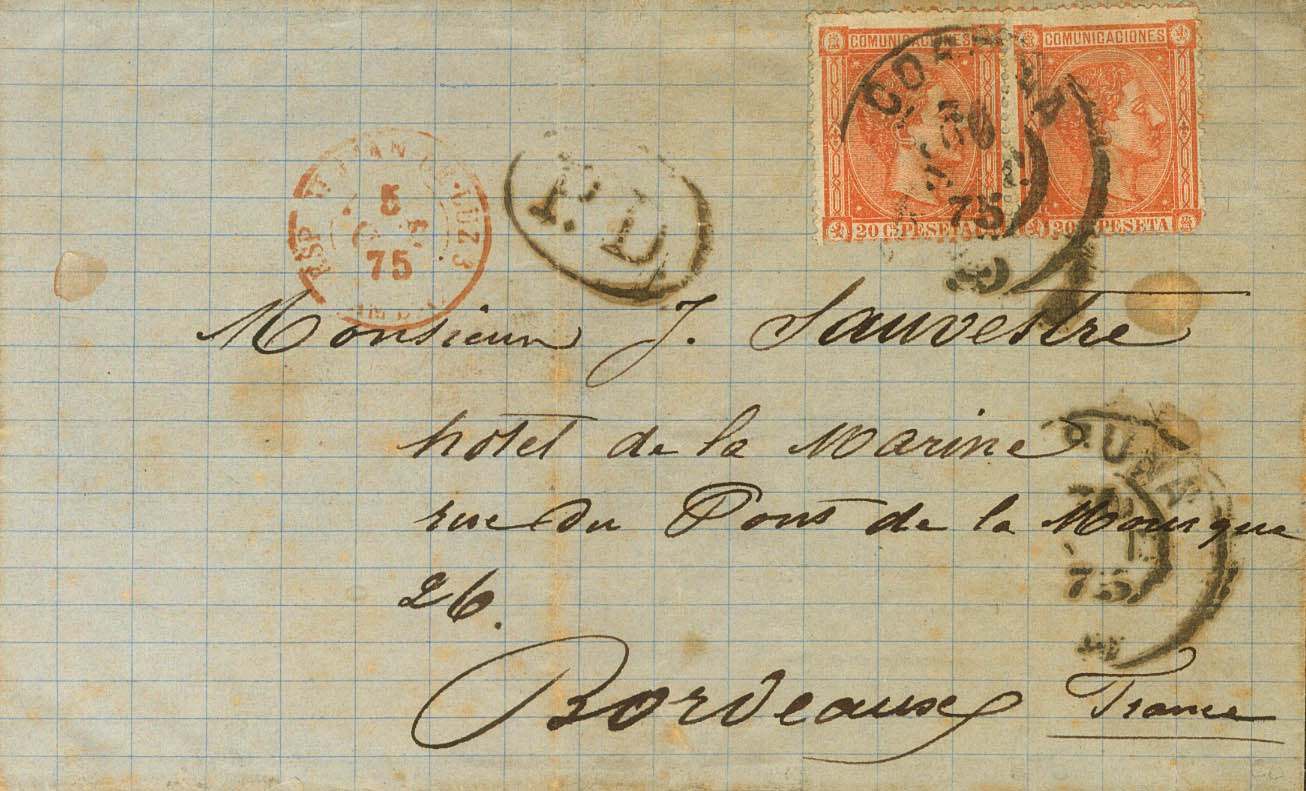 COMUNICACIONES COMUNICACIONES
CORUÑA
30
75
20 C. PESETA 20 C. PESETA
ESP. ST JEAN DE LUZ 3
5
75
P.D
Monsieur J. Sauvestre
hotel de la Marine
rue du Pont de la Mousque
26.
Bordeaux France
CORUÑA
75